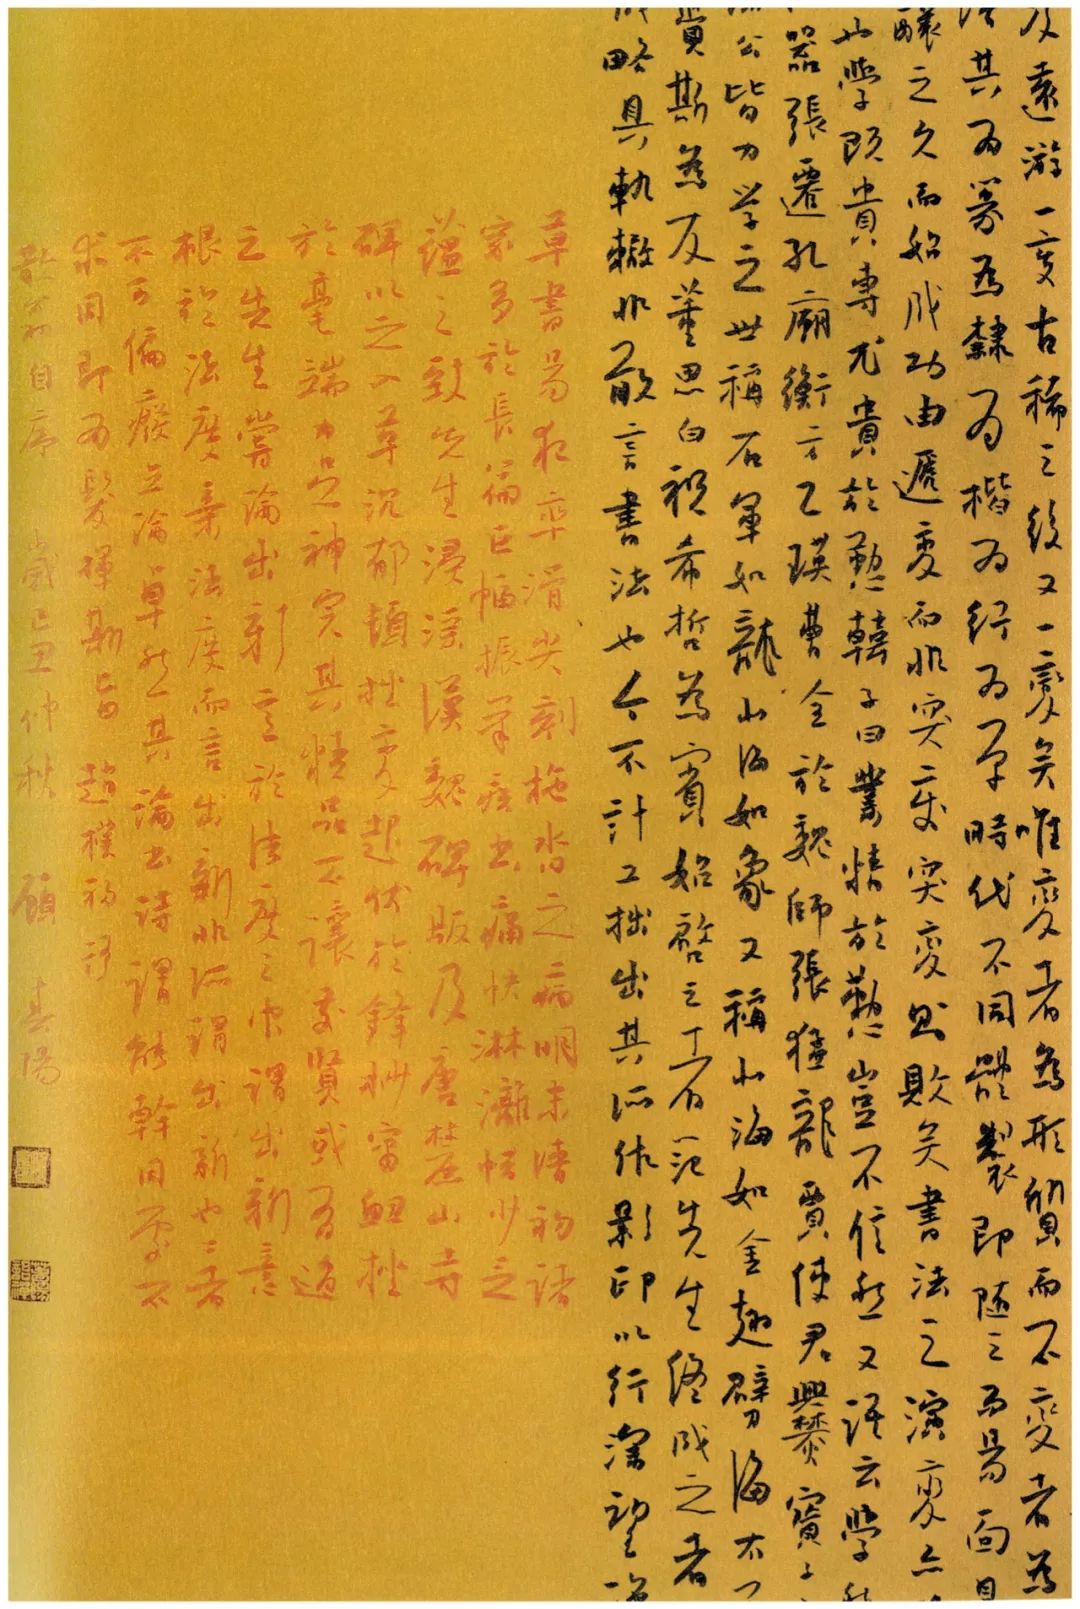 及遠游一變古稀之後又一變矣唯變者為形質而不變者為
其為篆為隸為楷為行為草時代不同體製即隨之而易面目
釀之久而始成功由遞變而非突變突變則欺矣書法之演變亦
也學頤貴專尤貴於勤韓子曰業精於勤豈不信然又語云學
器張遷孔廟衡方乙瑛曹全於魏師張猛龍賈使君爨寶子
公皆力學之世稱右軍如龍北海如象又稱北海如金翅劈海太
賓斯為友董思白祝希哲為賓始啓之者范先生終成之者
略具軌轍非敢言書法也今不計工拙出其所作影印以行深望
草書易犯率滑尖刻拖沓之病明末清初諸
家多於長偏巨幅振筆疾書痛快淋漓恆少
蘊之致先生浸淫漢魏碑版及唐楷
碑以之入草沉郁頓拙變起伏於鋒杪富
於毫端力息神完其精品不讓前賢或有過
之先生嘗論出新意於法度之中謂出新意
根於法度棄法度而言出新非所謂出新也二者
不可偏廢立論卓然其論書詩謂能幹同
求同即為髮揮斯旨趙樸初評
翁自序 歲己丑仲秋 顧 陽